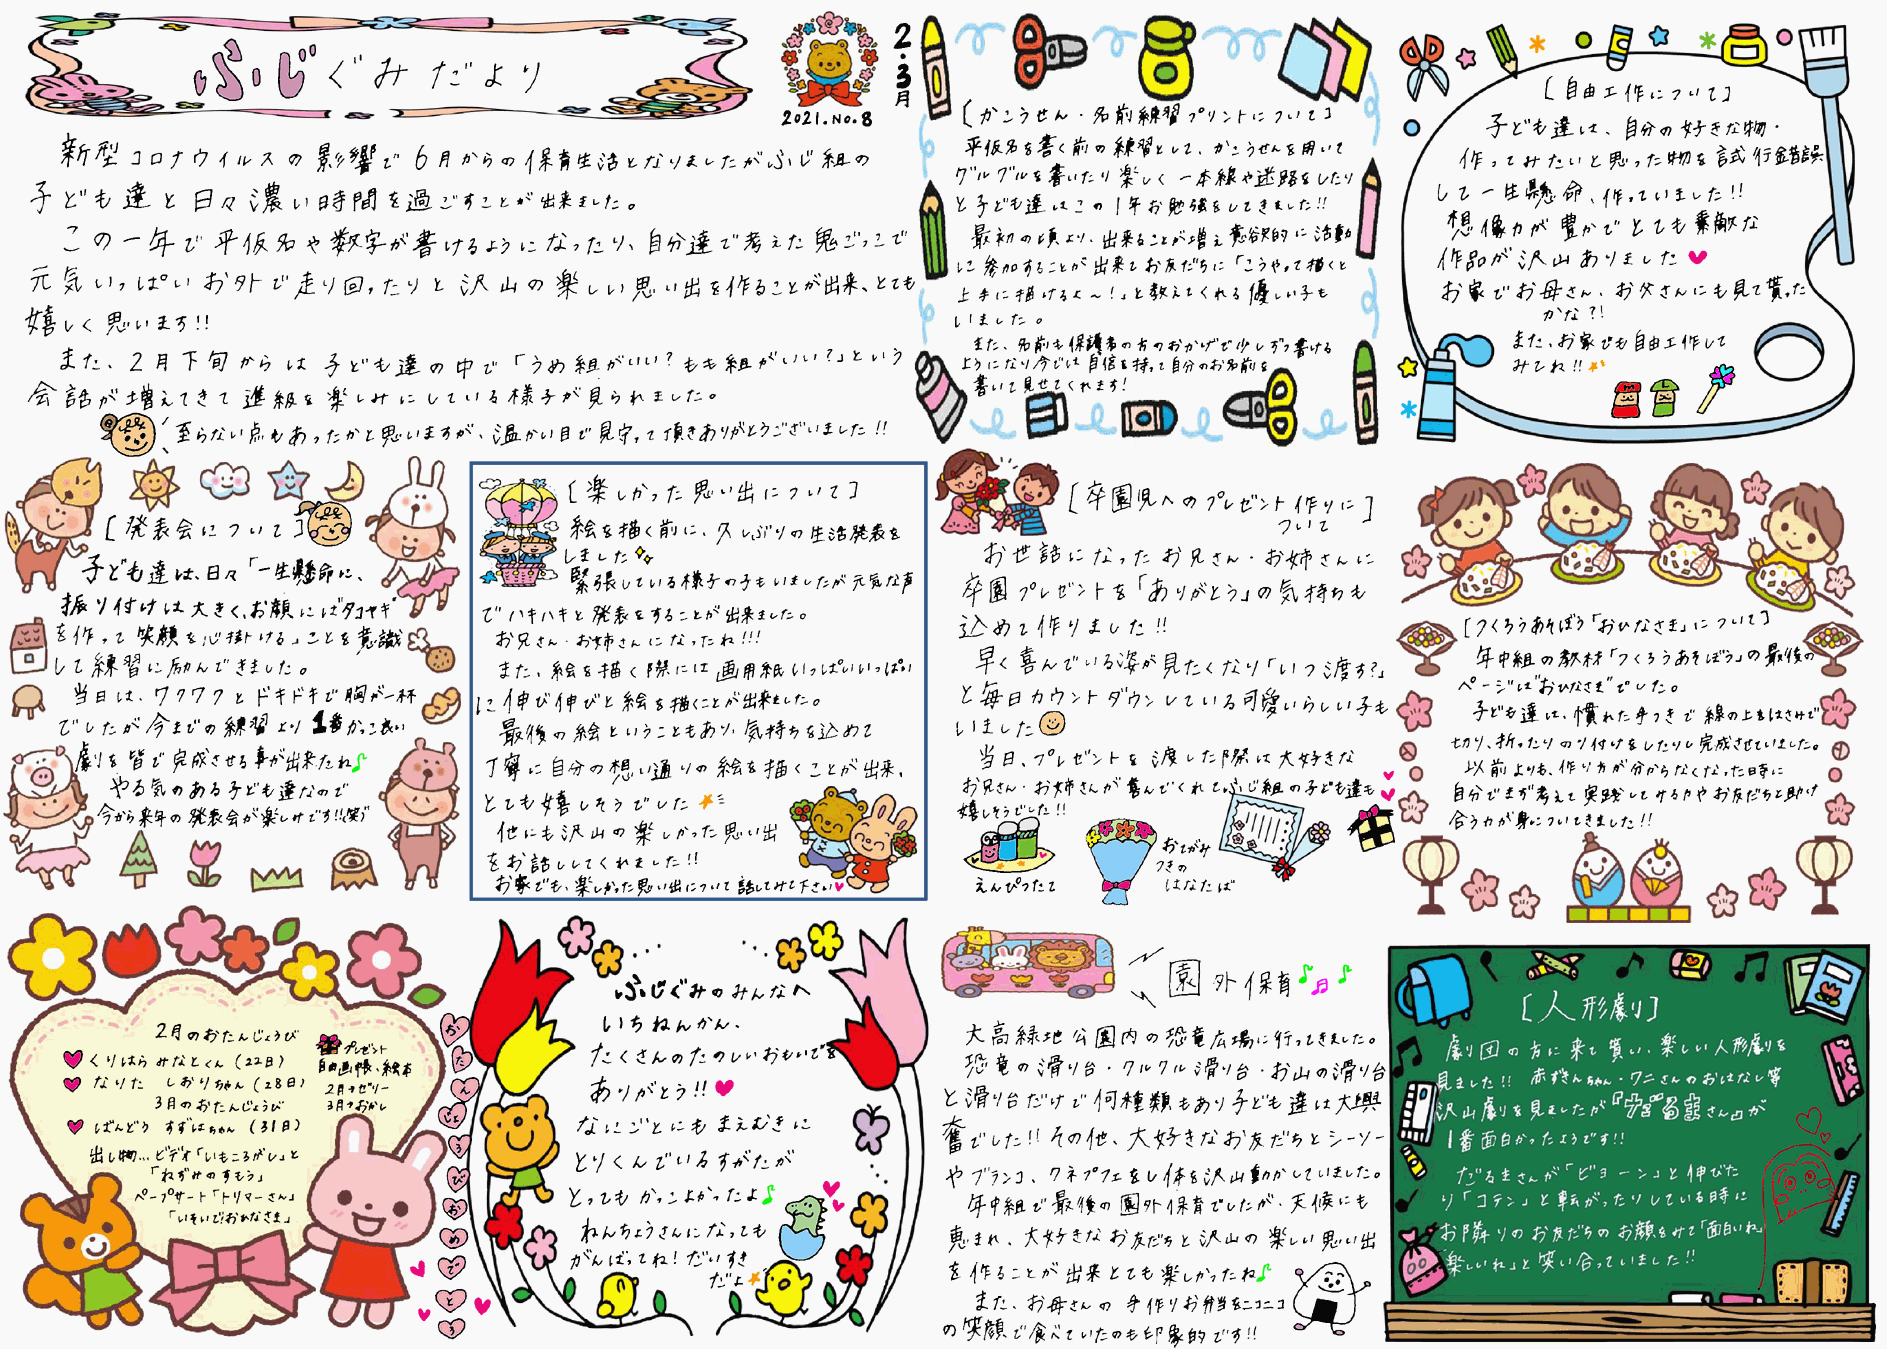 ふじぐみだより
2021.No.8
2・3月
新型コロナウイルスの影響で6月からの保育生活となりましたがふじ組の
子ども達と日々濃い時間を過ごすことが出来ました。
この一年で平仮名や数字が書けるようになったり、自分達で考えた鬼ごっこで
元気いっぱいお外で走り回ったりと沢山の楽しい思い出を作ることが出来、とても
嬉しく思います!!
また、2月下旬からは子ども達の中で「うめ組がいい?もも組がいい?」という
会話が増えてきて進級を楽しみにしている様子が見られました。
至らない点もあったかと思いますが、温かい目で見守って頂きありがとうございました!!
[かこうせん・名前練習プリントについて]
平仮名を書く前の練習として、かこうせんを用いて
グルグルを書いたり楽しく一本線や迷路をしたり
と子ども達はこの1年お勉強をしてきました!!
最初の頃より、出来ることが増え意欲的に活動
に参加することが出来てお友だちに「こうやって描くと
上手に描けるよ〜!」と教えてくれる優しい子も
いました。
また、名前も保護者の方のおかげで少しずつ書ける
ようになり今では自信を持って自分のお名前を
書いて見せてくれます!
[自由工作について]
子ども達は、自分の好きな物・
作ってみたいと思った物を試行錯誤
して一生懸命、作っていました!!
想像力が豊かでとても素敵な
作品が沢山ありました♥
お家でお母さん、お父さんにも見て貰った
かな?!
また、お家でも自由工作して
みてね!!
[発表会について]
子ども達は、日々「一生懸命に、
振り付けは大きく、お顔にはタコヤキ
を作って笑顔を心掛ける」ことを意識
して練習に励んできました。
当日は、ワクワクとドキドキで胸が一杯
でしたが今までの練習より1番かっこ良い
劇を皆で完成させる事が出来たね♪
やる気のある子ども達なので
今から来年の発表会が楽しみです!!(笑)
[楽しかった思い出について]
絵を描く前に、久しぶりの生活発表を
しました
緊張している様子の子もいましたが元気な声
でハキハキと発表をすることが出来ました。
お兄さん・お姉さんになったね!!!
また、絵を描く際には画用紙いっぱいいっぱい
に伸び伸びと絵を描くことが出来ました。
最後の絵ということもあり、気持ちを込めて
丁寧に自分の想い通りの絵を描くことが出来、
とても嬉しそうでした
他にも沢山の楽しかった思い出
をお話ししてくれました!!
お家でも、楽しかった思い出について話してみて下さい♥
[卒園児へのプレゼント作りに
ついて]
お世話になったお兄さん・お姉さんに
卒園プレゼントを「ありがとう」の気持ちも
込めて作りました!!
早く喜んでいる姿が見たくなり「いつ渡す?」
と毎日カウントダウンしている可愛いらしい子も
いました
当日、プレゼントを渡した際は大好きな
お兄さん・お姉さんが喜んでくれてふじ組の子ども達も
嬉しそうでした!!
えんぴつたて
おてがみ
つきの
はなたば
[つくろうあそぼう「おひなさま」について]
年中組の教材「つくろうあそぼう」の最後の
ページは"おひなさま"でした。
子ども達は、慣れた手つきで線の上をはさみで
切り、折ったりのり付けをしたりし完成させていました。
以前よりも、作り方が分からなくなった時に
自分でまず考えて実践してみる力やお友だちと助け
合う力が身についてきました!!
2月のおたんじょうび
♥くりはら みなとくん(22日)
♥なりた しおりちゃん(28日)
3月のおたんじょうび
♥ばんどう すずはちゃん(31日)
プレゼント
自由画帳、絵本
2月→ゼリー
3月→おかし
出し物…ビデオ「いもころがし」と
「ねずみのすもう」
ペープサート「トリマーさん」
「いそいで!おひなさま」
おたんじょうびおめでとう
ふじぐみのみんなへ
いちねんかん、
たくさんのたのしいおもいでを
ありがとう!!♥
なにごとにもまえむきに
とりくんでいるすがたが
とってもかっこよかったよ♪
ねんちょうさんになっても
がんばってね!だいすき
だよ
園外保育♪♫♪
大高緑地公園内の恐竜広場に行ってきました。
恐竜の滑り台・クルクル滑り台・お山の滑り台
と滑り台だけで何種類もあり子ども達は大興
奮でした!!その他、大好きなお友だちとシーソー
やブランコ、クネプフェをし体を沢山動かしていました。
年中組で最後の園外保育でしたが、天候にも
恵まれ、大好きなお友だちと沢山の楽しい思い出
を作ることが出来とても楽しかったね♪
また、お母さんの手作りお弁当をニコニコ
の笑顔で食べていたのも印象的です!!
[人形劇]
劇団の方に来て貰い、楽しい人形劇を
見ました!!赤ずきんちゃん・ワニさんのおはなし等
沢山劇を見ましたが『だるまさん』が
1番面白かったようです!!
だるまさんが「ビヨーン」と伸びた
り「コテン」と転がったりしている時に
お隣りのお友だちのお顔をみて「面白いね」
「楽しいね」と笑い合っていました!!